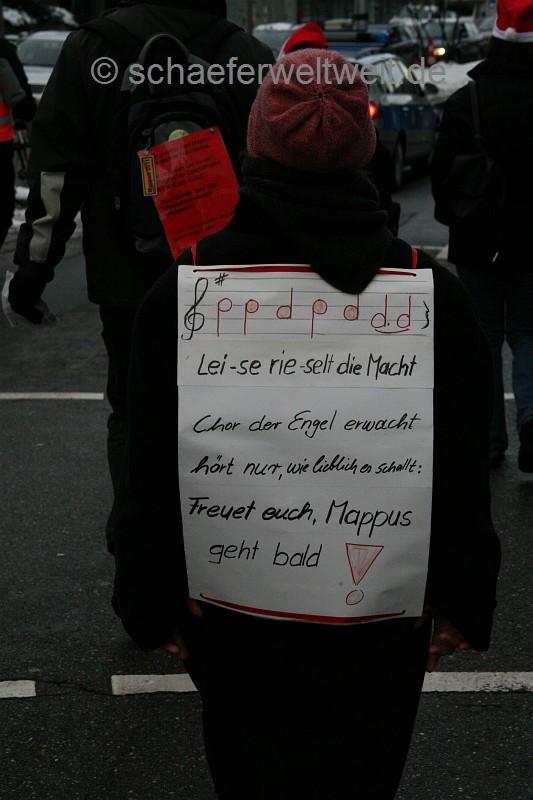 © schaeferweltweit.de
Lei-se rie-selt die Macht
Chor der Engel erwacht
hört nur, wie lieblich es schallt:
Freuet euch, Mappus
geht bald !